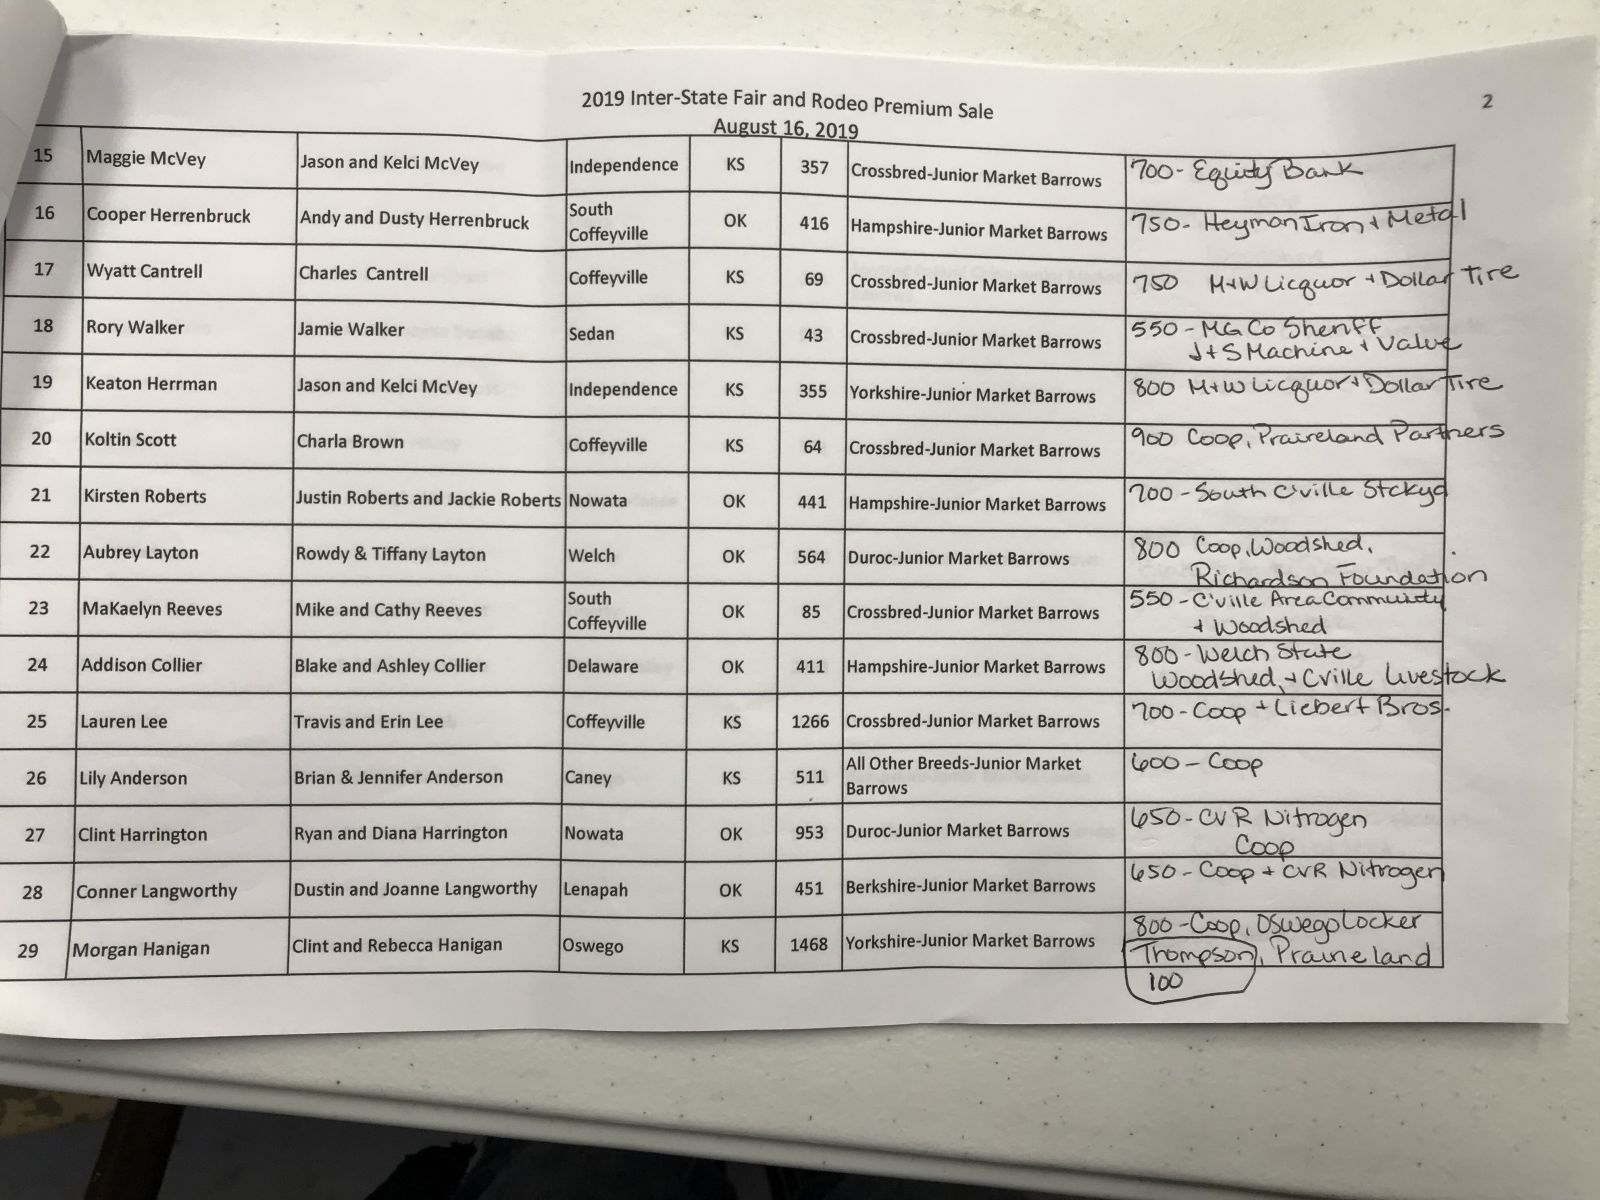 2019 Inter-State Fair and Rodeo Premium Sale
2
August 16, 2019
15 Maggie McVey Jason and Kelci McVey Independence KS 357 Crossbred-Junior Market Barrows 700- Equity Bank
16 Cooper Herrenbruck Andy and Dusty Herrenbruck South Coffeyville OK 416 Hampshire-Junior Market Barrows 750- Heyman Iron + Metal
17 Wyatt Cantrell Charles Cantrell Coffeyville KS 69 Crossbred-Junior Market Barrows 750 M+W Licquor + Dollar Tire
18 Rory Walker Jamie Walker Sedan KS 43 Crossbred-Junior Market Barrows 550 - MG Co Sheriff
J+S Machine + Valve
19 Keaton Herrman Jason and Kelci McVey Independence KS 355 Yorkshire-Junior Market Barrows 800 M+W Licquor + Dollar Tire
20 Koltin Scott Charla Brown Coffeyville KS 64 Crossbred-Junior Market Barrows 900 Coop, Praireland Partners
21 Kirsten Roberts Justin Roberts and Jackie Roberts Nowata OK 441 Hampshire-Junior Market Barrows 700 - South C'ville Stckyd
22 Aubrey Layton Rowdy & Tiffany Layton Welch OK 564 Duroc-Junior Market Barrows 800 Coop, Woodshed,
Richardson Foundation
23 MaKaelyn Reeves Mike and Cathy Reeves South Coffeyville OK 85 Crossbred-Junior Market Barrows 550 - C'ville Area Community
+ Woodshed
24 Addison Collier Blake and Ashley Collier Delaware OK 411 Hampshire-Junior Market Barrows 800 - Welch State
Woodshed, + Cville Livestock
25 Lauren Lee Travis and Erin Lee Coffeyville KS 1266 Crossbred-Junior Market Barrows 700 - Coop + Liebert Bros.
26 Lily Anderson Brian & Jennifer Anderson Caney KS 511 All Other Breeds-Junior Market Barrows 600 - Coop
27 Clint Harrington Ryan and Diana Harrington Nowata OK 953 Duroc-Junior Market Barrows 650 - CVR Nitrogen
Coop
28 Conner Langworthy Dustin and Joanne Langworthy Lenapah OK 451 Berkshire-Junior Market Barrows 650 - Coop + CVR Nitrogen
29 Morgan Hanigan Clint and Rebecca Hanigan Oswego KS 1468 Yorkshire-Junior Market Barrows 800 - Coop, Oswego Locker
Thompson, Praireland
100